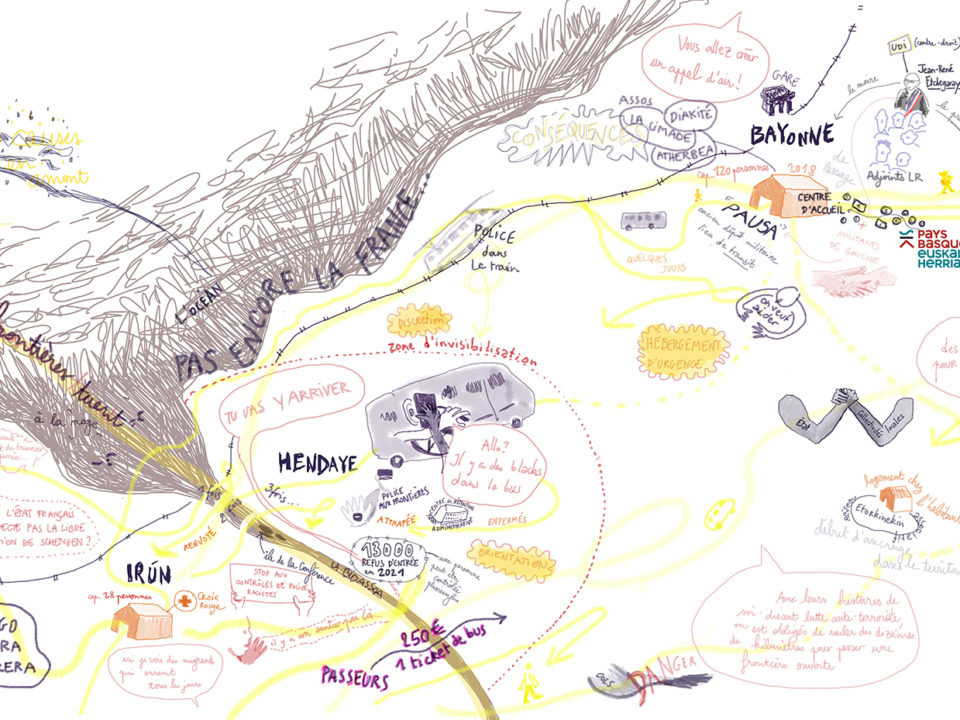 Vous allez créer
un appel d'air !
GARE
BAYONNE
UDI
(centre-droit)
Jean-René
Etchegaray
le maire
Adjoints LR
causes
en
amont
CONSÉQUENCES
Assos
LA CIMADE
DIAKITÉ
ATHERBEA
cap. 120 personnes
2018
CENTRE
D'ACCUEIL
"PAUSA"
ancien dépôt militaire
lieu de transit
de
passage
MILITANTS
DE GAUCHE
PAYS
BASQUE
EUSKAL
HERRIA
POLICE
dans
le train
QUELQUES
JOURS
on veut
aider
L'OCÉAN
PAS ENCORE LA FRANCE...
frontières tuent
à la nage
DISCRÉTION
zone d'invisibilisation
HÉBERGEMENT
D'URGENCE
TU VAS Y ARRIVER
HENDAYE
Allo ?
Il y a des blacks
dans le bus
3 fois...
2 fois
POLICE
AUX FRONTIÈRES
ATTRAPÉE
CENTRE DE RÉTENTION
ADMINISTRATIVE
ENFERMÉS
État
Collectivités locales
des
pour
logement chez
l'habitant
Etorkinekin
début d'ancrage
dans le territoi
L'ÉTAT FRANÇAIS
PAS LA LIBRE
ON DE SCHENGEN ?
RENVOYÉ
IRÚN
cap. 28 personnes
Croix
Rouge
île de la Conférence
LA BIDASSOA
STOP AUX
CONTRÔLES DE POLICE
RACISTES
13000
REFUS D'ENTRÉE
en 2021
une personne
peut être
contrôlée
plusieurs fs
ORIENTATION
il y a un sentier par là...
ici je vois des migrants
qui errent
tous les jours
PASSEURS
250€
1 ticket de bus
DANGER
Avec leurs histoires de
soi-disant lutte anti-terroriste,
on est obligés de rouler des dizaines
de kilomètres pour passer une
frontière ouverte